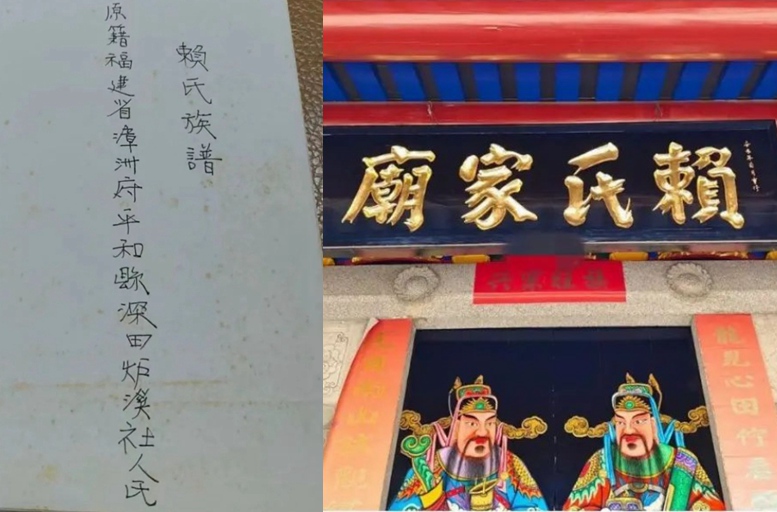 賴氏族譜
原籍福建省漳洲府平和縣深田炉溪社人民
賴氏家廟
龍見心田竹